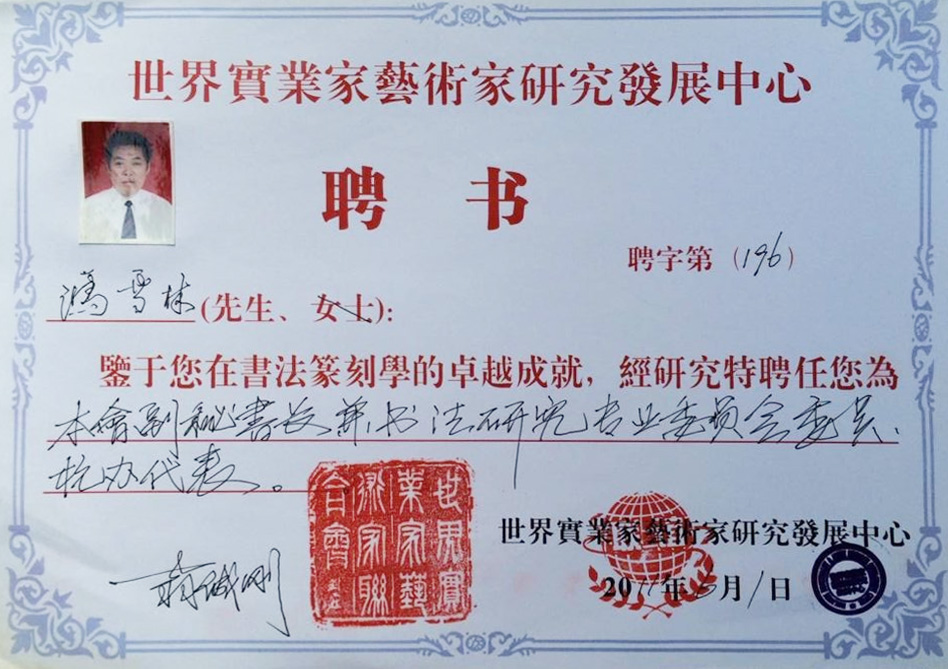 世界實業家藝術家研究發展中心
聘 书
聘字第（196）
雪林(先生、女士):
鑒于您在書法篆刻學的卓越成就，經研究特聘任您為
本會副秘書长兼书法研究专业委员会委員、
杭办代表。
世界實業家藝術家聯合會
世界實業家藝術家研究發展中心
20 年 月1日